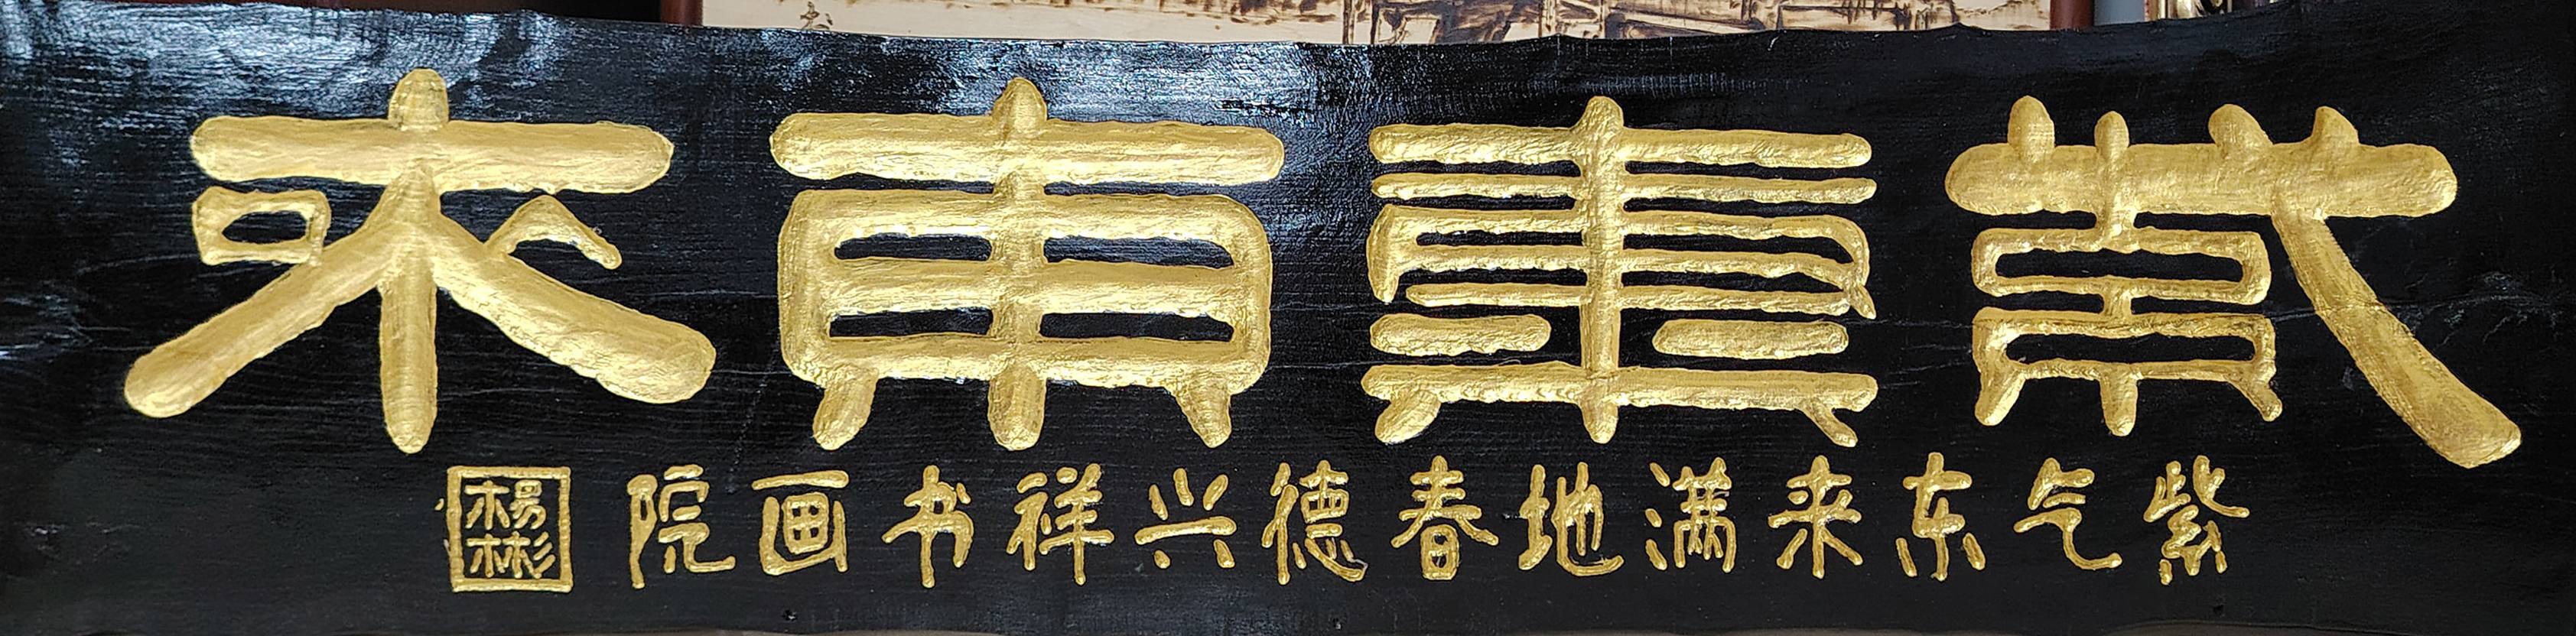 紫气東來
紫气东来满地春德兴祥书画院
杨彬